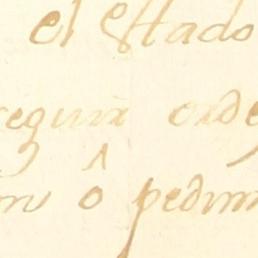 el Estado
segun orde
n ô pedim